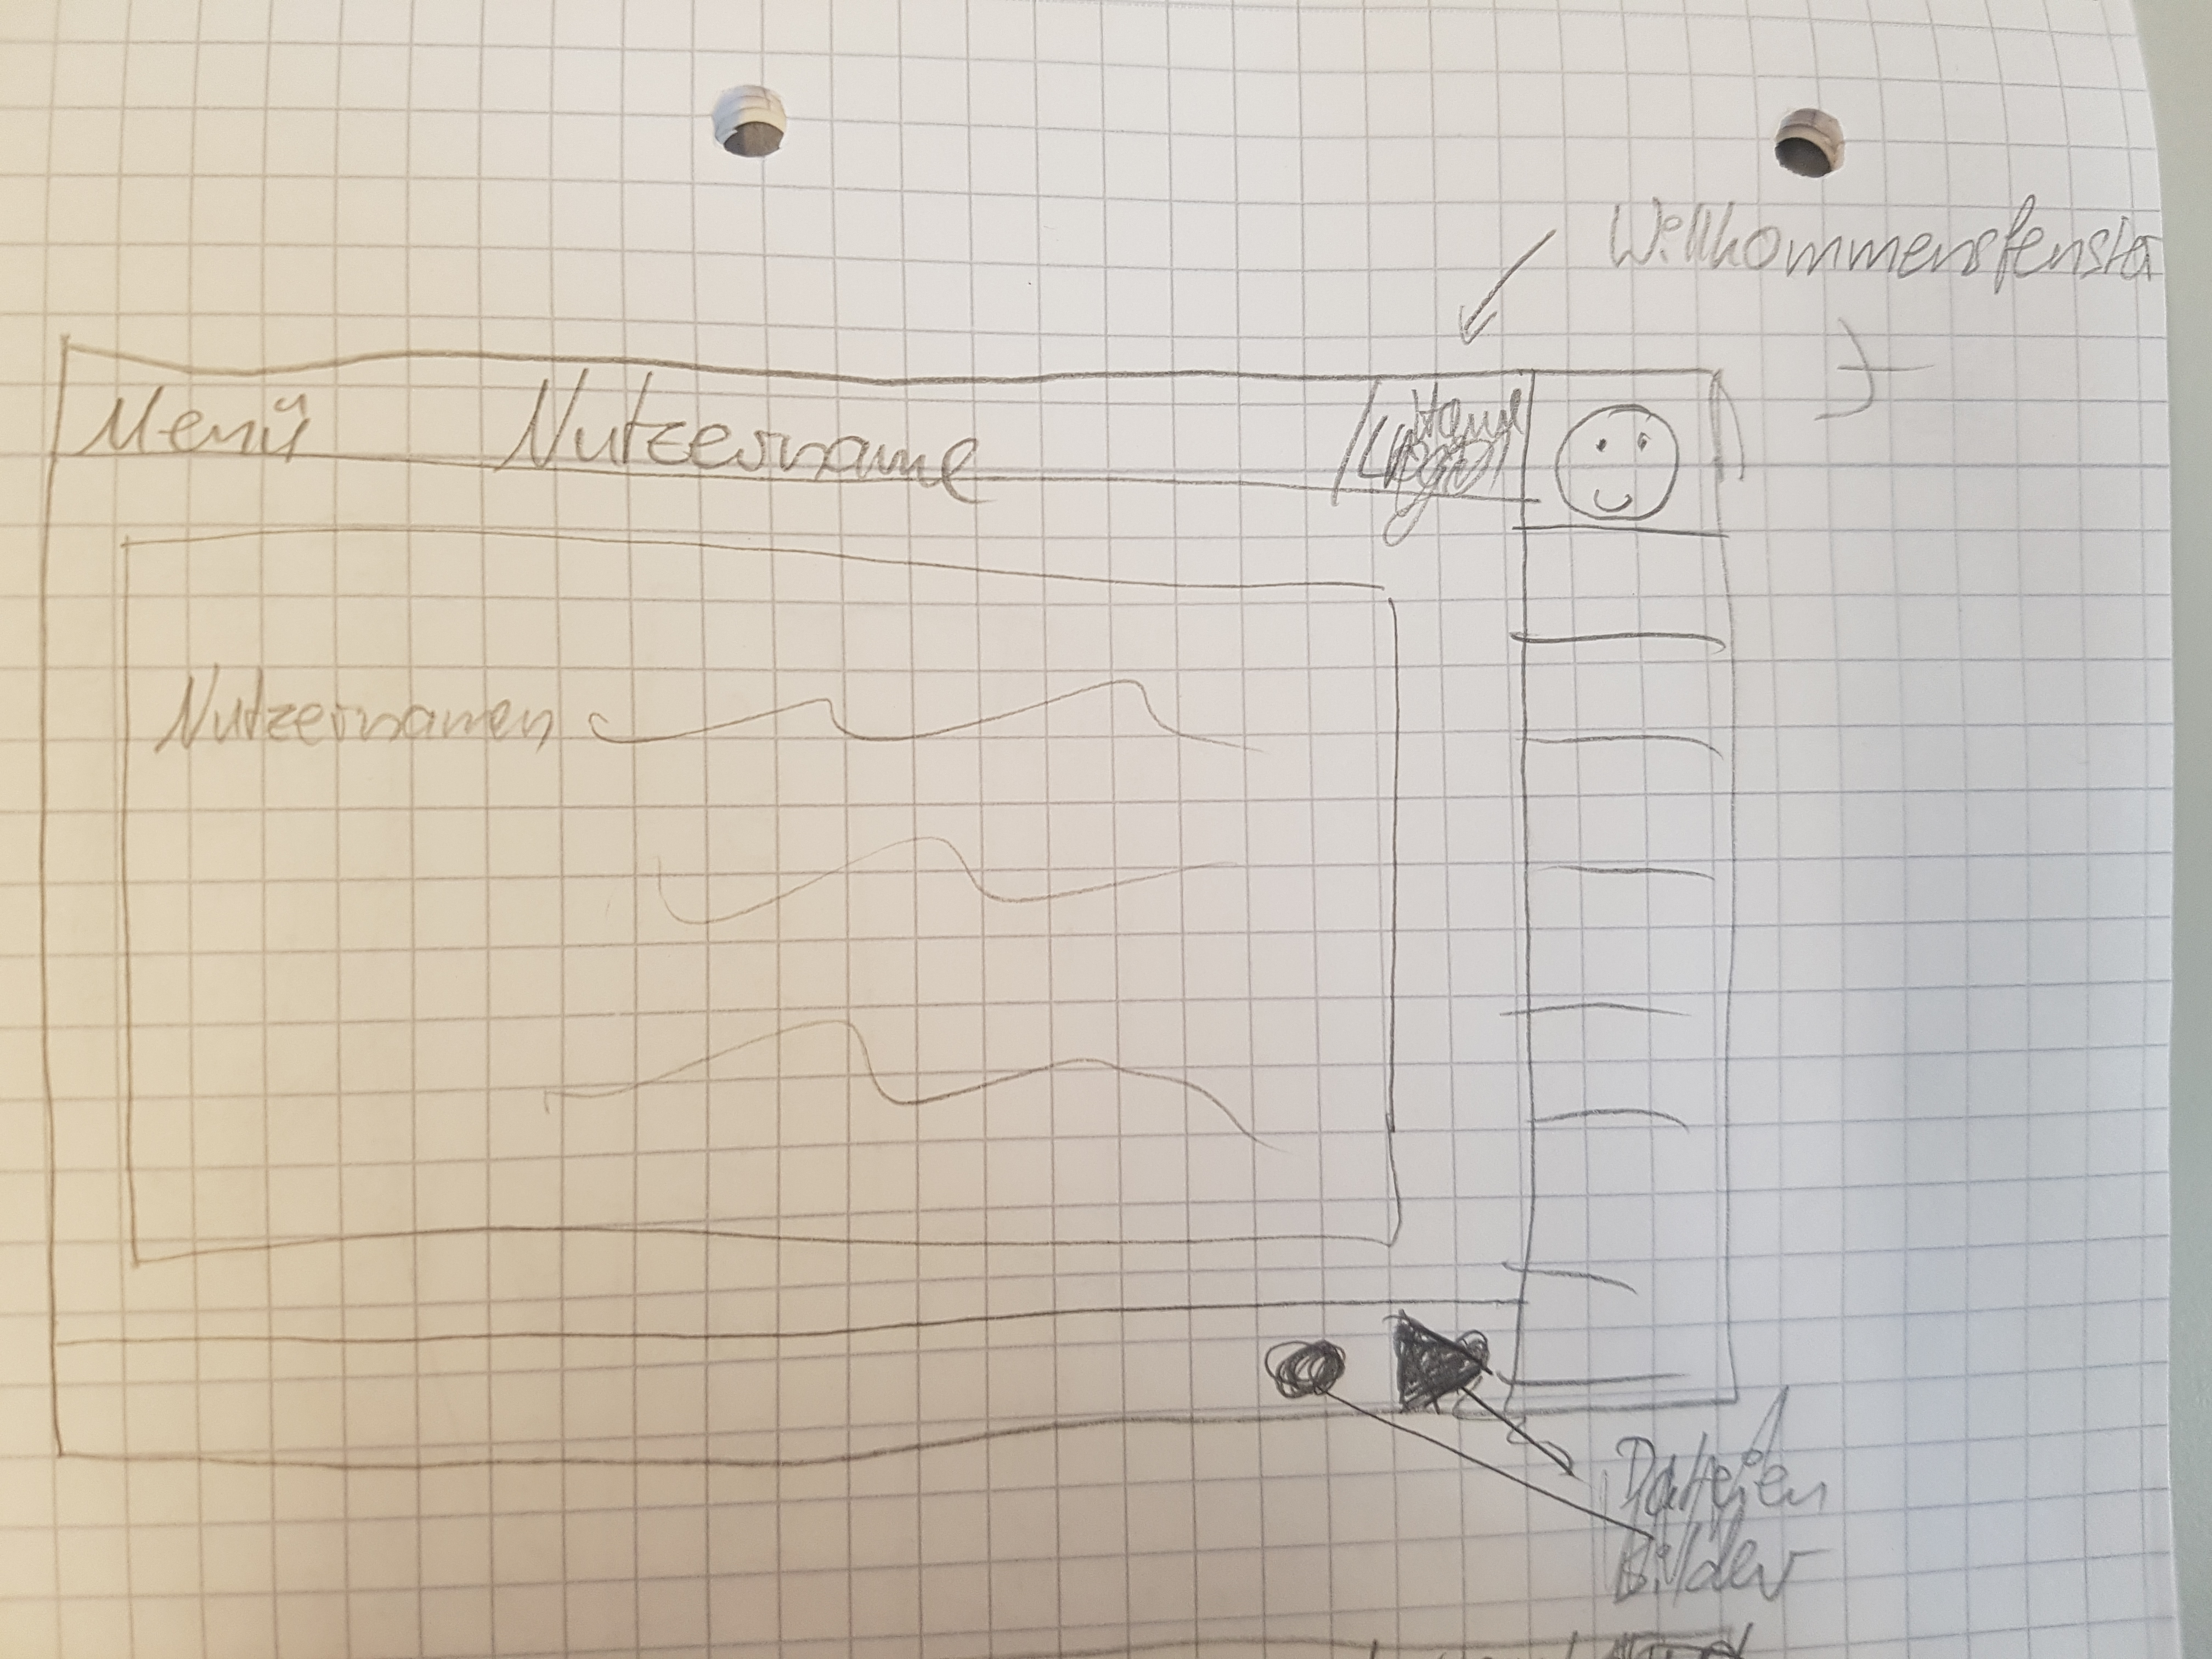 Willkommensfenster
Menü Nutzername
Nutzernamen
Dateien
Bilder